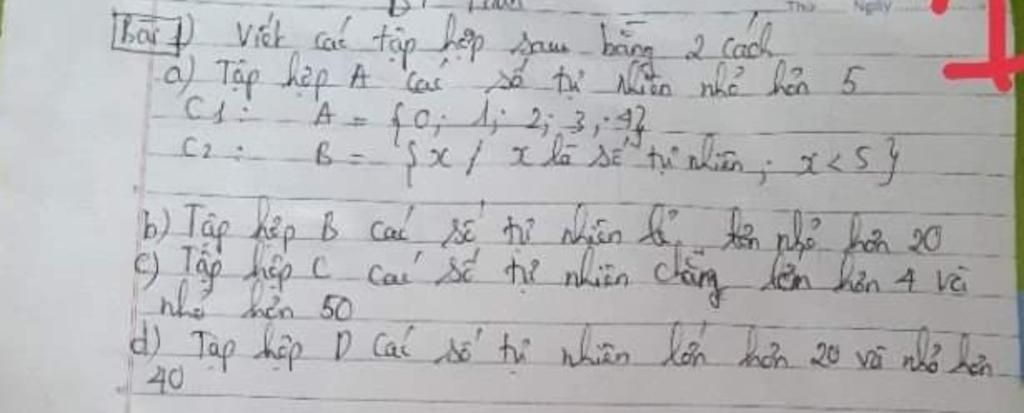 Thứ Ngày
Bài 1) Viết các tập hợp sau bằng 2 cách
a) Tập hợp A các số tự nhiên nhỏ hơn 5
C1: A = {0; 1; 2; 3; 4}
C2: B = {x / x là số tự nhiên; x < 5}
b) Tập hợp B các số tự nhiên lẻ nhỏ hơn 20
c) Tập hợp C các số tự nhiên chẵng lớn hơn 4 và
nhỏ hơn 50
d) Tập hợp D các số tự nhiên lớn hơn 20 và nhỏ hơn
40